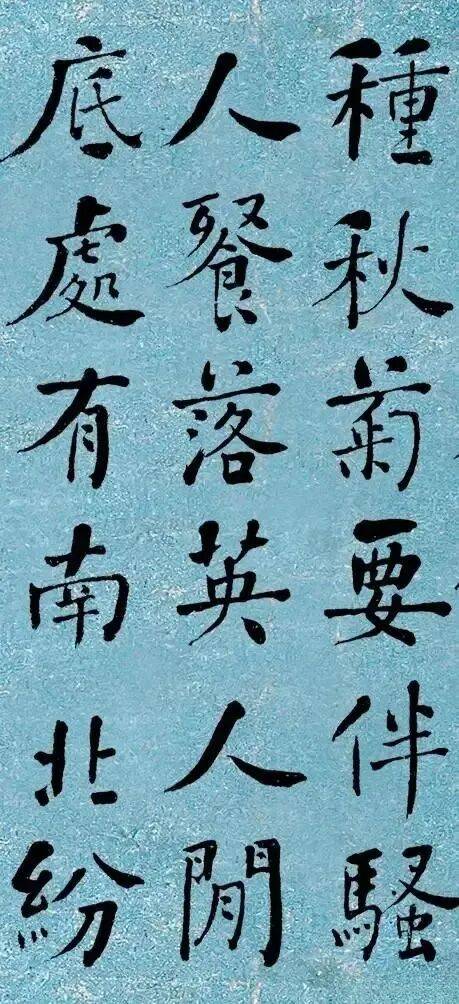 種秋菊要伴騷
人餐落英人閒
底處有南北紛